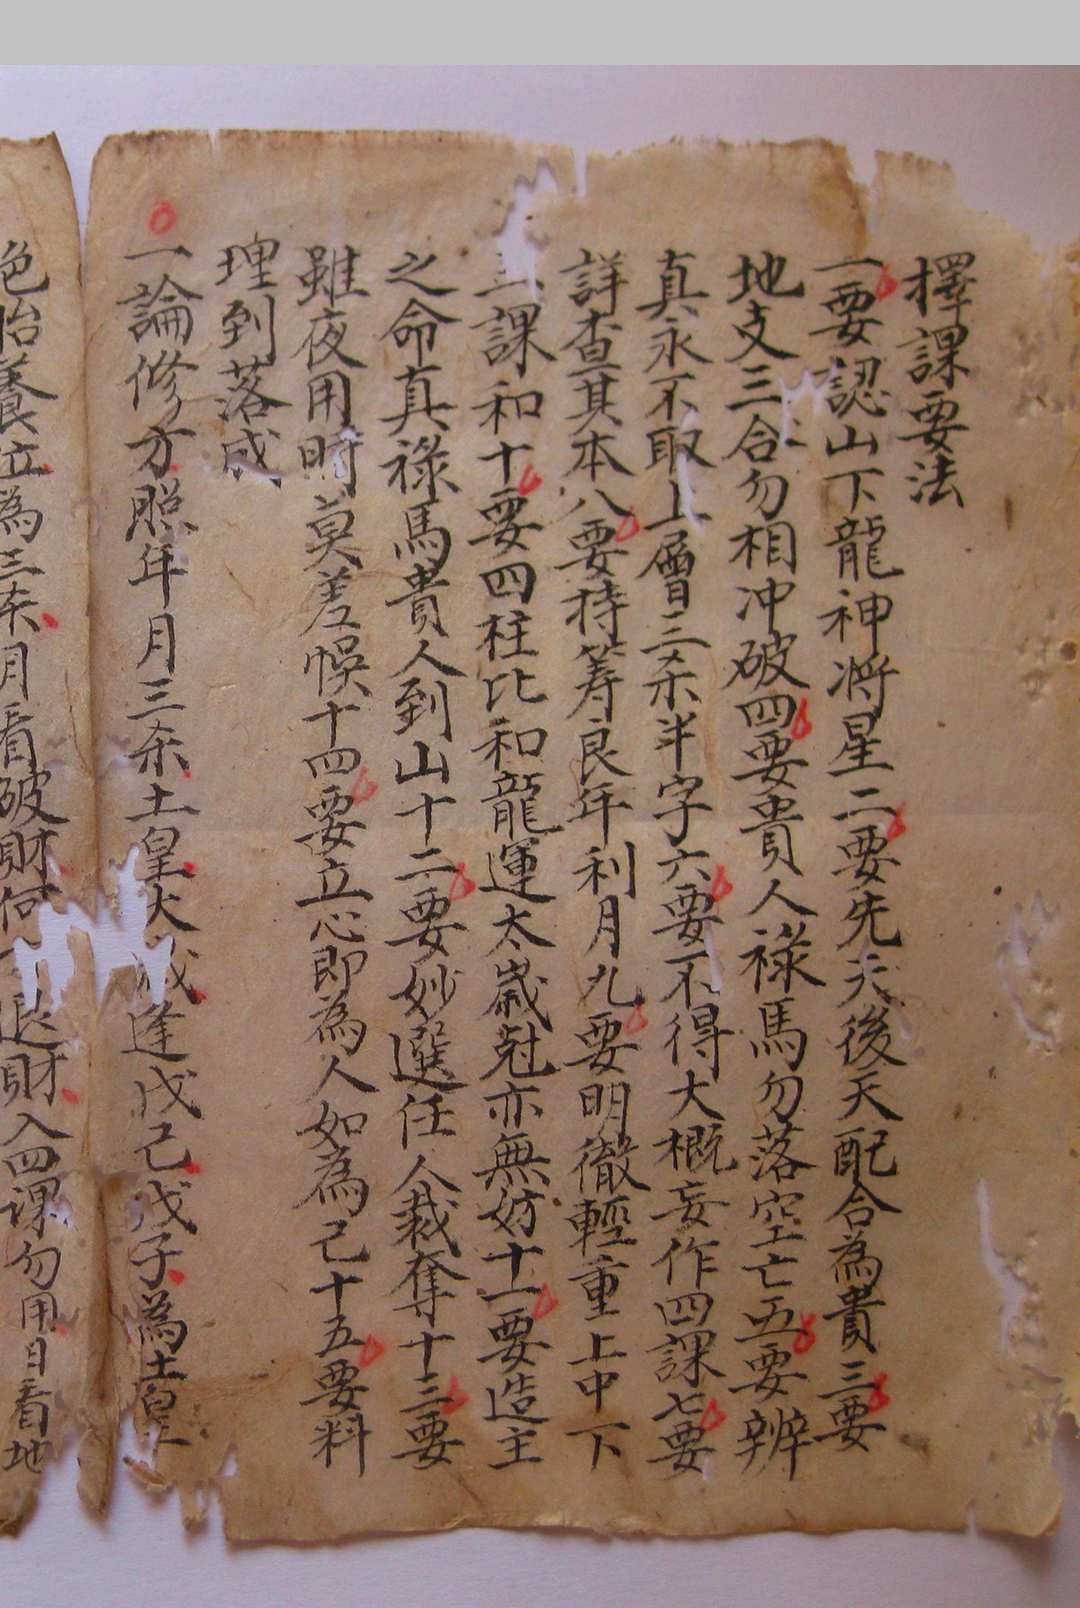 擇課要法
一要認山下龍神將星二要先天後天配合為貴三要
地支三合勿相冲破四要貴人祿馬勿落空亡五要辨
真永不取上層三杀半字六要不得大概妄作四課七要
詳查其本八要持筹良年利月九要明徹輕重上中下
三課和十要四柱比和龍運太歲尅亦無妨十一要造主
之命真祿馬貴人到山十二要妙選任人裁奪十三要
雖夜用時莫差悞十四要立心即為人如為己十五要料
理到落成
一論修方照年月三杀土皇大歲逢戊己戊子為土皇
色怡養立為三杀月看破財何退財入四課勿用日看地